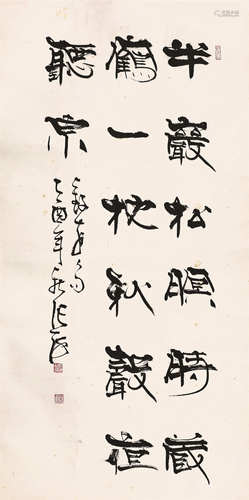 半巖松暝時藏
鶴一枕秋聲夜
聽泉
乙酉年秋張海